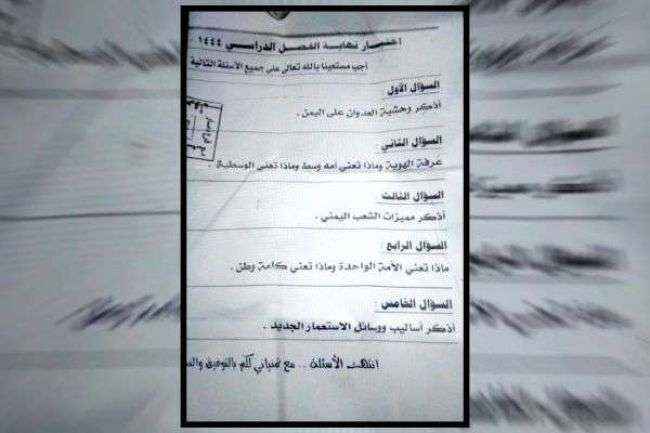 اختبار نهاية الفصل الدراسي ١٤٤٤
أجب مستعينا بالله تعالى على جميع الأسئلة التالية
السؤال الأول
أذكر وحشية العدوان على اليمن .
السؤال الثاني
عرفة الهوية وماذا تعني امه وسط وماذا تعني الوسطية .
السؤال الثالث
أذكر مميزات الشعب اليمني .
السؤال الرابع
ماذا تعني الأمة الواحدة وماذا تعني كلمة وطن .
السؤال الخامس :
أذكر أساليب ووسائل الاستعمار الجديد .
انتهت الأسئلة .. مع تمنياتي لكم بالتوفيق